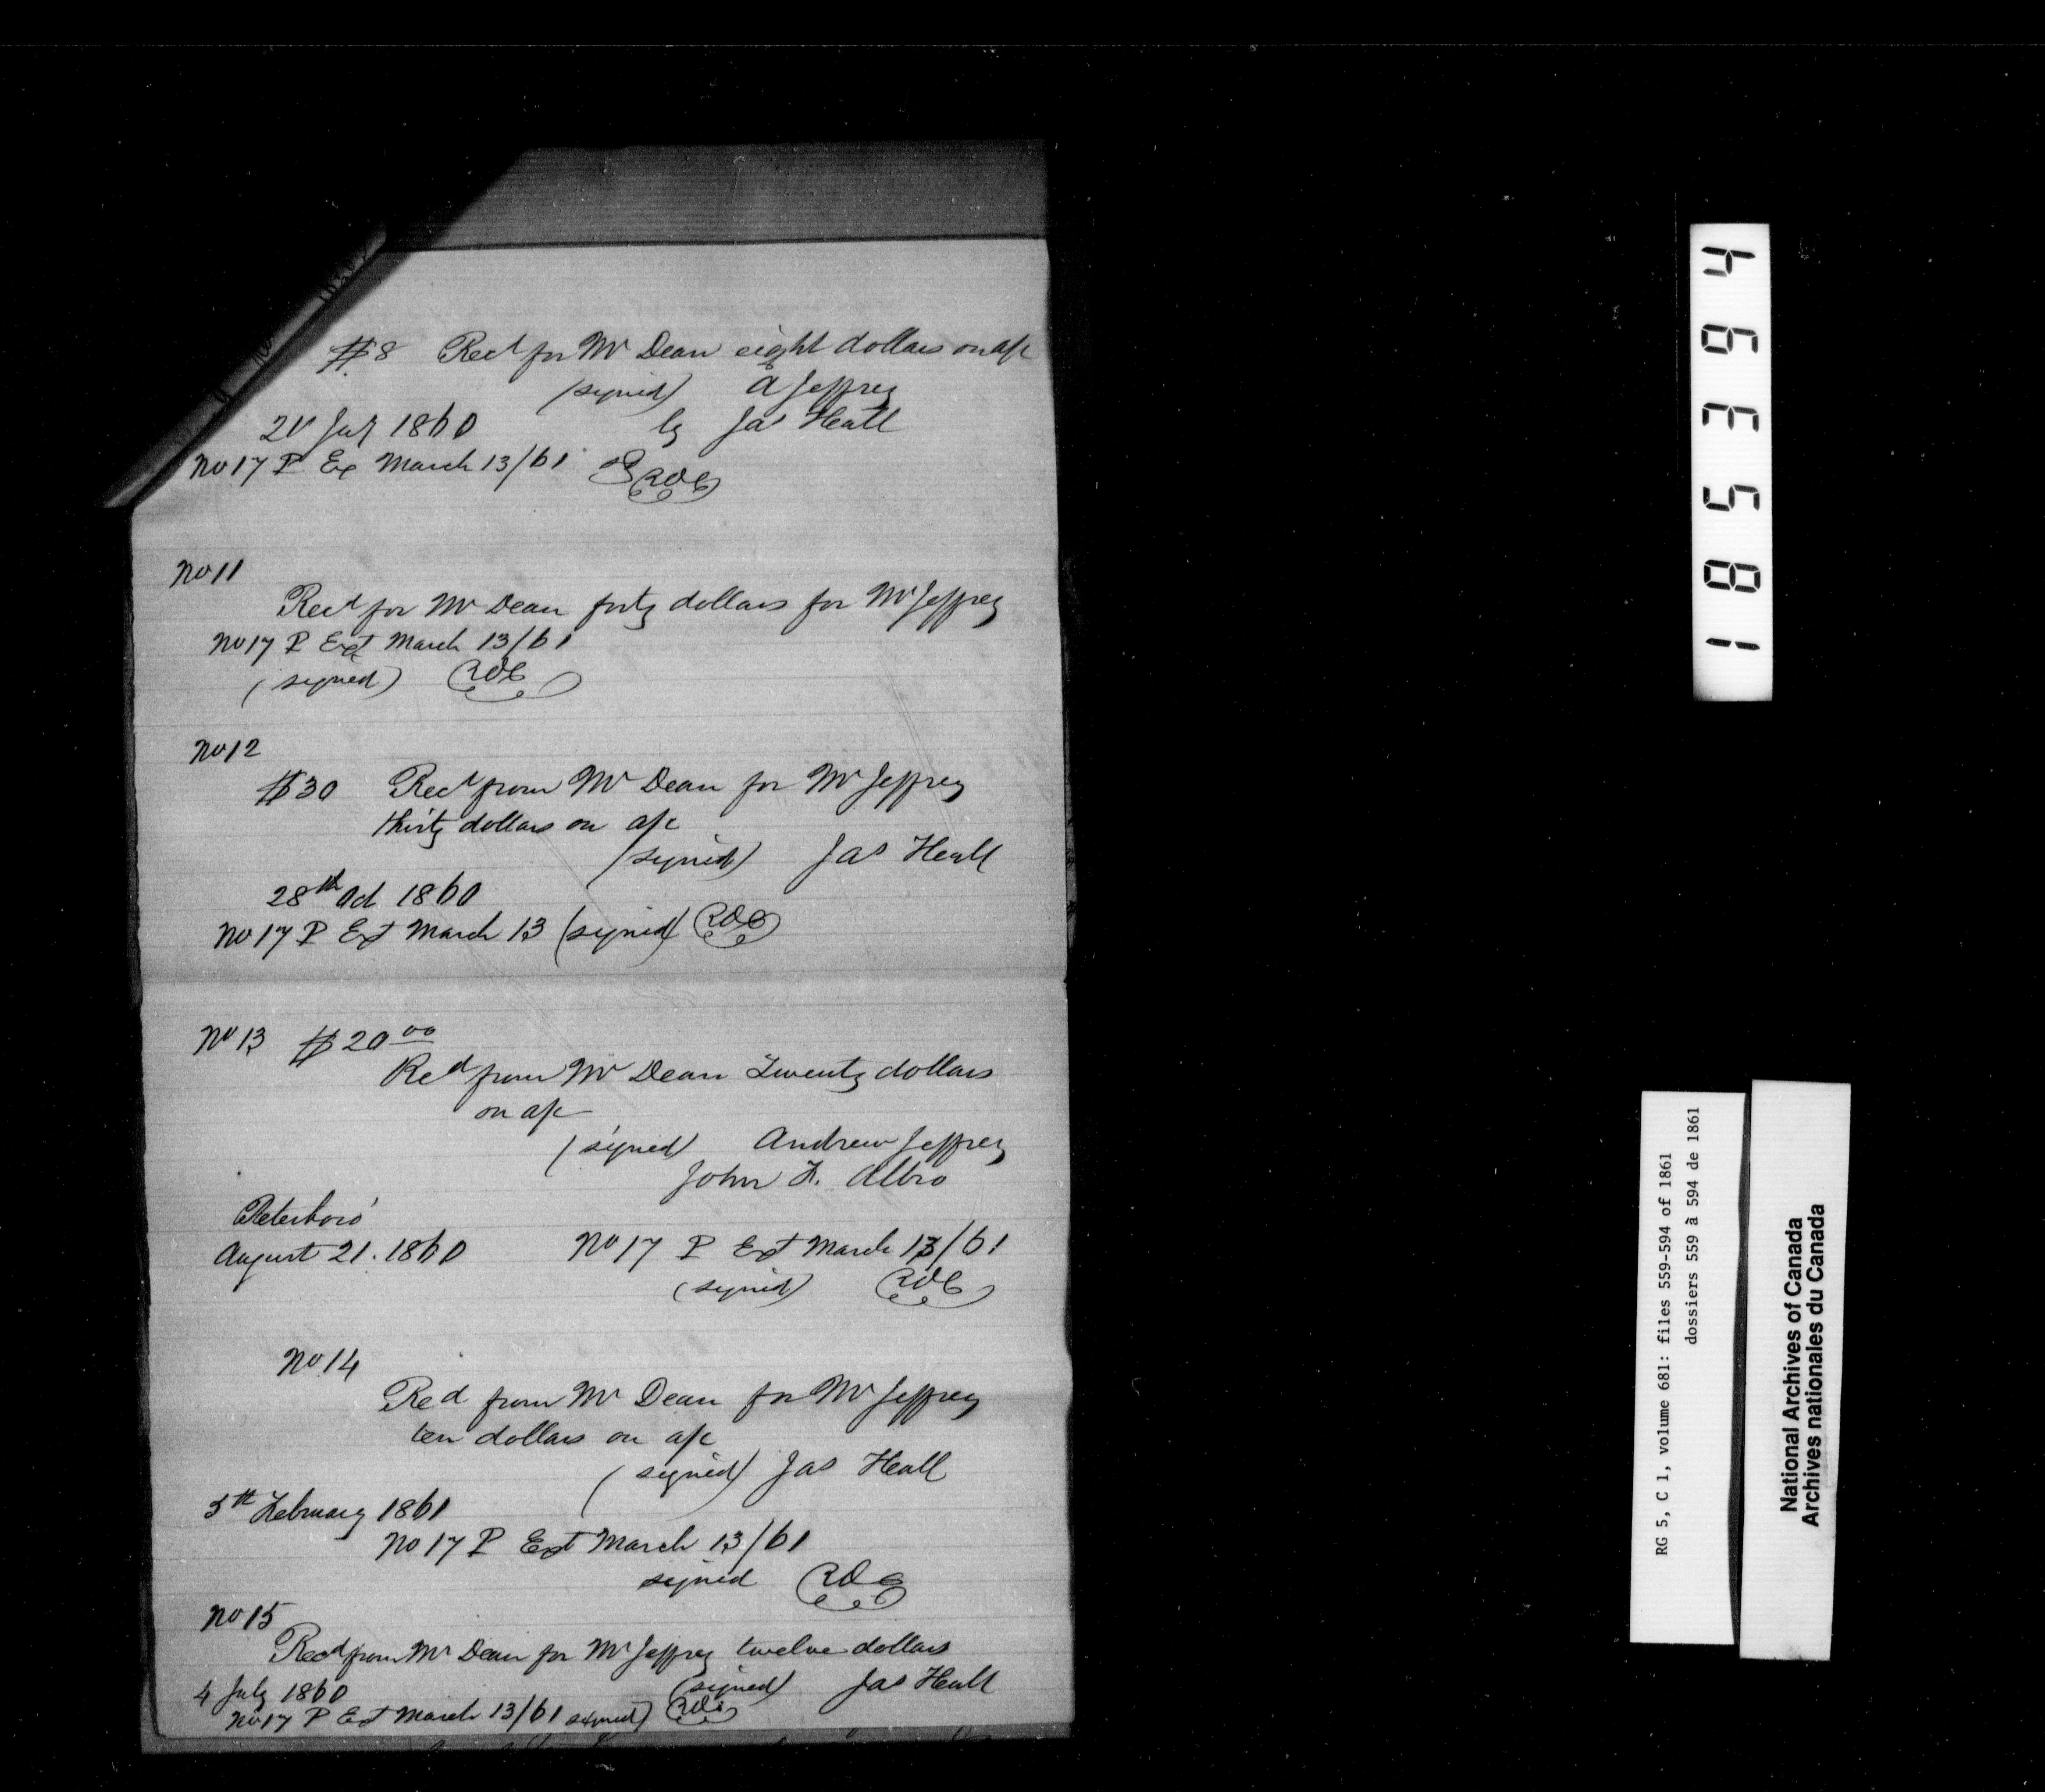 $8 Recd for Mr Dean eight dollars on a/c
(signed) A Jeffrey
21 July 1860 by Jas Heall
No 17 P Ex March 13/61 RDC
No 11
Recd for Mr Dean forty dollars for Mr Jeffrey
No 17 P Ext March 13/61
(signed) RDC
No 12
$30 Recd from Mr Dean for Mr Jeffrey
thirty dollars on a/c
(signed) Jas Heall
28th Oct 1860
No 17 P Ext March 13 (signed) RDC
No 13 $20 00
Recd from Mr Dean Twenty dollars
on a/c
(signed) Andrew Jeffrey
John F. Albro
Peterboro'
August 21. 1860 No 17 P Ext March 13/61
(signed) RDC
No 14
Red from Mr Dean for Mr Jeffrey
ten dollars on a/c
(signed) Jas Heall
5th February 1861
No 17 P Ext March 13/61
signed RDC
No 15
Recd from Mr Dean for Mr Jeffrey twelve dollars
4 July 1860 (signed) Jas Heall
No 17 P Ext March 13/61 signed) RDC
185364
RG 5, C 1, volume 681: files 559-594 of 1861
dossiers 559 à 594 de 1861
National Archives of Canada
Archives nationales du Canada